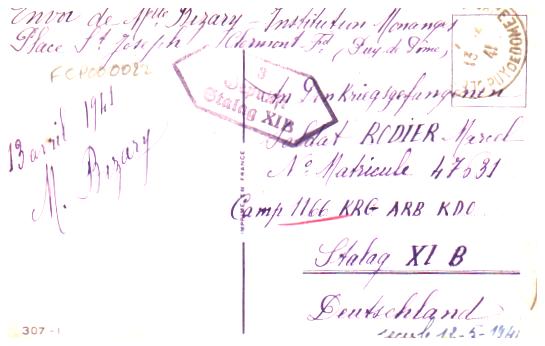 Envoi de Mlle Bizary - Institution Monanges
Place St Joseph Clermont-Fd (Puy de Dôme)
FCP000022
13 avril 1941
M. Bizary
3
Geprüft
Stalag XIB
13
41
PUY DE DOME
An den Kriegsgefangenen
Soldat RODIER Marcel
No Matricule 47031
Camp 1166 KRG ARB KDO
Stalag XI B
Deutschland
IMPRIMÉ EN FRANCE
307-1
12-5-1941